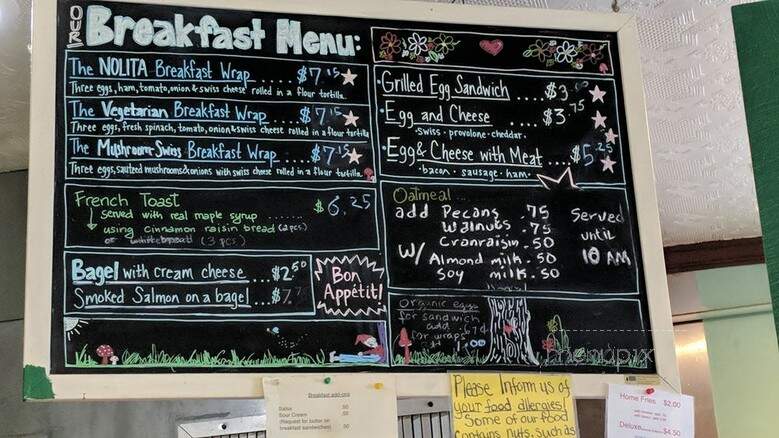 OUR
Breakfast Menu:
The NOLITA Breakfast Wrap..... $7.15
Three eggs, ham, tomato, onion & swiss cheese rolled in a flour tortilla
The Vegetarian Breakfast Wrap.... $7.15
Three eggs, fresh spinach, tomato, onion & swiss cheese rolled in a flour tortilla
The Mushroom Swiss Breakfast Wrap.... $7.15
Three eggs, sauteed mushrooms & onions with swiss cheese rolled in a flour tortilla.
French Toast
served with real maple syrup ....... $6.25
using cinnamon raisin bread (2pcs)
or whitebread (3 pcs)
Bagel with cream cheese ...$2.50
Smoked Salmon on a bagel...$7
Bon
Appétit!
Grilled Egg Sandwich ....$3
Egg and Cheese ....$3.75
swiss · provolone · cheddar.
Egg & Cheese with Meat ....$5.25
bacon · sausage · ham.
Oatmeal ...
add Pecans .75
Walnuts .75
Cranraisin .50
w/ Almond milk .50
Soy milk .50
Served
until
10 AM
Organic eggs
for sandwich
add
for wraps
1.00
menupix
Breakfast add-ons
Salsa .50
Sour Cream .50
(Request for butter on
breakfast sandwiches) .50
Please Inform us of
your food allergies!
Some of our food
contains nuts, such as
Home Fries $2.00
Deluxe $4.50